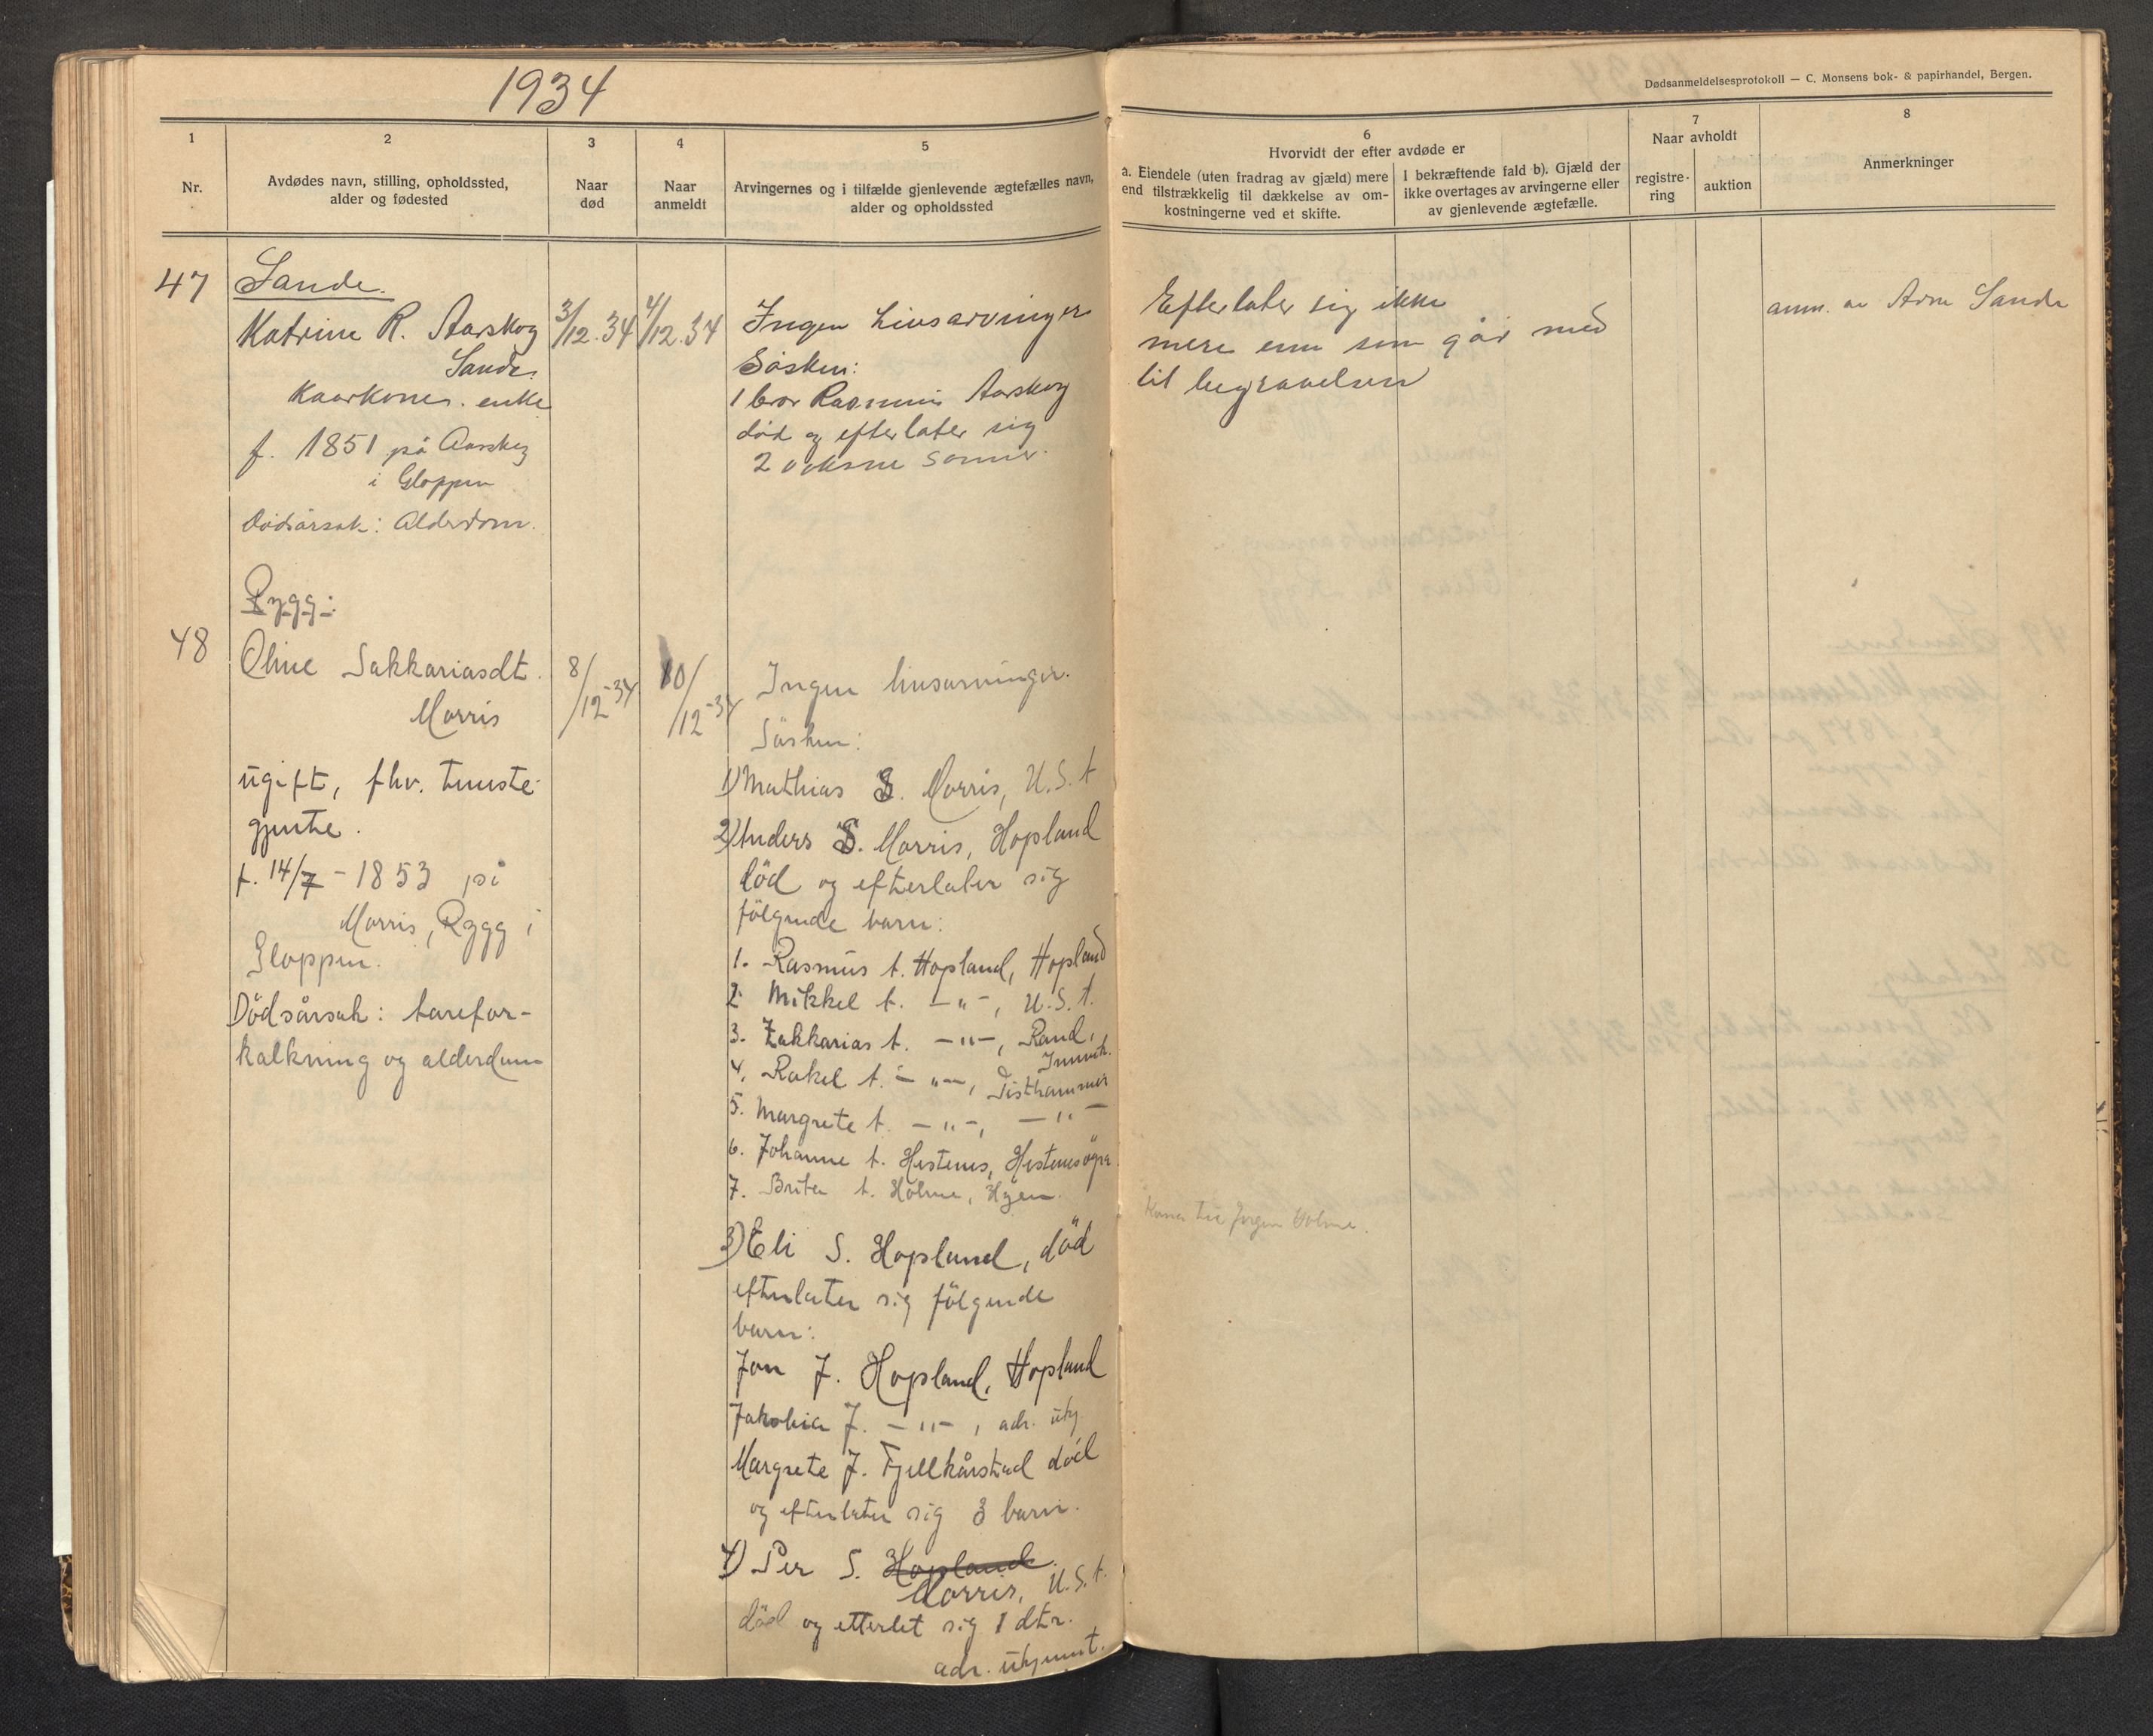 1934
Dødsanmeldelsesprotokoll — C. Monsens bok- & papirhandel, Bergen.
1
Nr.
2
Avdødes navn, stilling, opholdssted,
alder og fødested
3
Naar
død
4
Naar
anmeldt
5
Arvingernes og i tilfælde gjenlevende ægtefælles navn,
alder og opholdssted
6
Hvorvidt der efter avdøde er
a. Eiendele (uten fradrag av gjæld) mere
end tilstrækkelig til dækkelse av om-
kostningerne ved et skifte.
I bekræftende fald b). Gjæld der
ikke overtages av arvingerne eller
av gjenlevende ægtefælle.
7
Naar avholdt
registre-
ring
auktion
8
Anmerkninger
47
Sande.
Katrine R. Aarskog
Sande.
Kaarkone. enke
f. 1851 på Aarskog
i Gloppen
Dødsårsak: Alderdom.
3/12.34
4/12.34
Ingen Livsarvinger
Søsken:
1 bror Rasmus Aarskog
død og efterlater sig
2 voksne sønner.
Efterlater sig ikke
mere enn som går med
til begravelsen
anm. av Arne Sande
48
Rygg:
Oline Sakkariasdt.
Morris
ugift, fhv. tjeneste-
gjente.
f. 14/7 - 1853 på
Morris, Rygg i
Gloppen.
Dödsårsak: årefor-
kalkning og alderdom
8/12-34
10/12-34
Ingen livsarvinger.
Sösken:
1) Mathias S. Morris, U.S.A
2) Anders S. Morris, Hopland
död og efterlater sig
fölgende barn:
1. Rasmus A. Hopland, Hopland
2. Mikkel A. -"-, U.S.A.
3. Zakkarias A. -"-, Rand,
Innvik.
4. Rakel A. -"-, Tisthammer
5. Margrete A. -"-, -"-
6. Johanne A. Hestenes, Hestenesöyra.
7. Brita A. Holme, Hyen.
Kona til Jørgen Holme.
3) Eli S. Hopland, död
efterlater sig fölgende
barn:
Jon J. Hopland, Hopland
Jakobia J. -"-, adr. ukj
Margrete J. Fjellkårstad död
og efterlater sig 3 barn.
4) Per S. Hopland
Morris, U.S.A.
död og etterlet sig 1 dtr.
adr. ukjent.